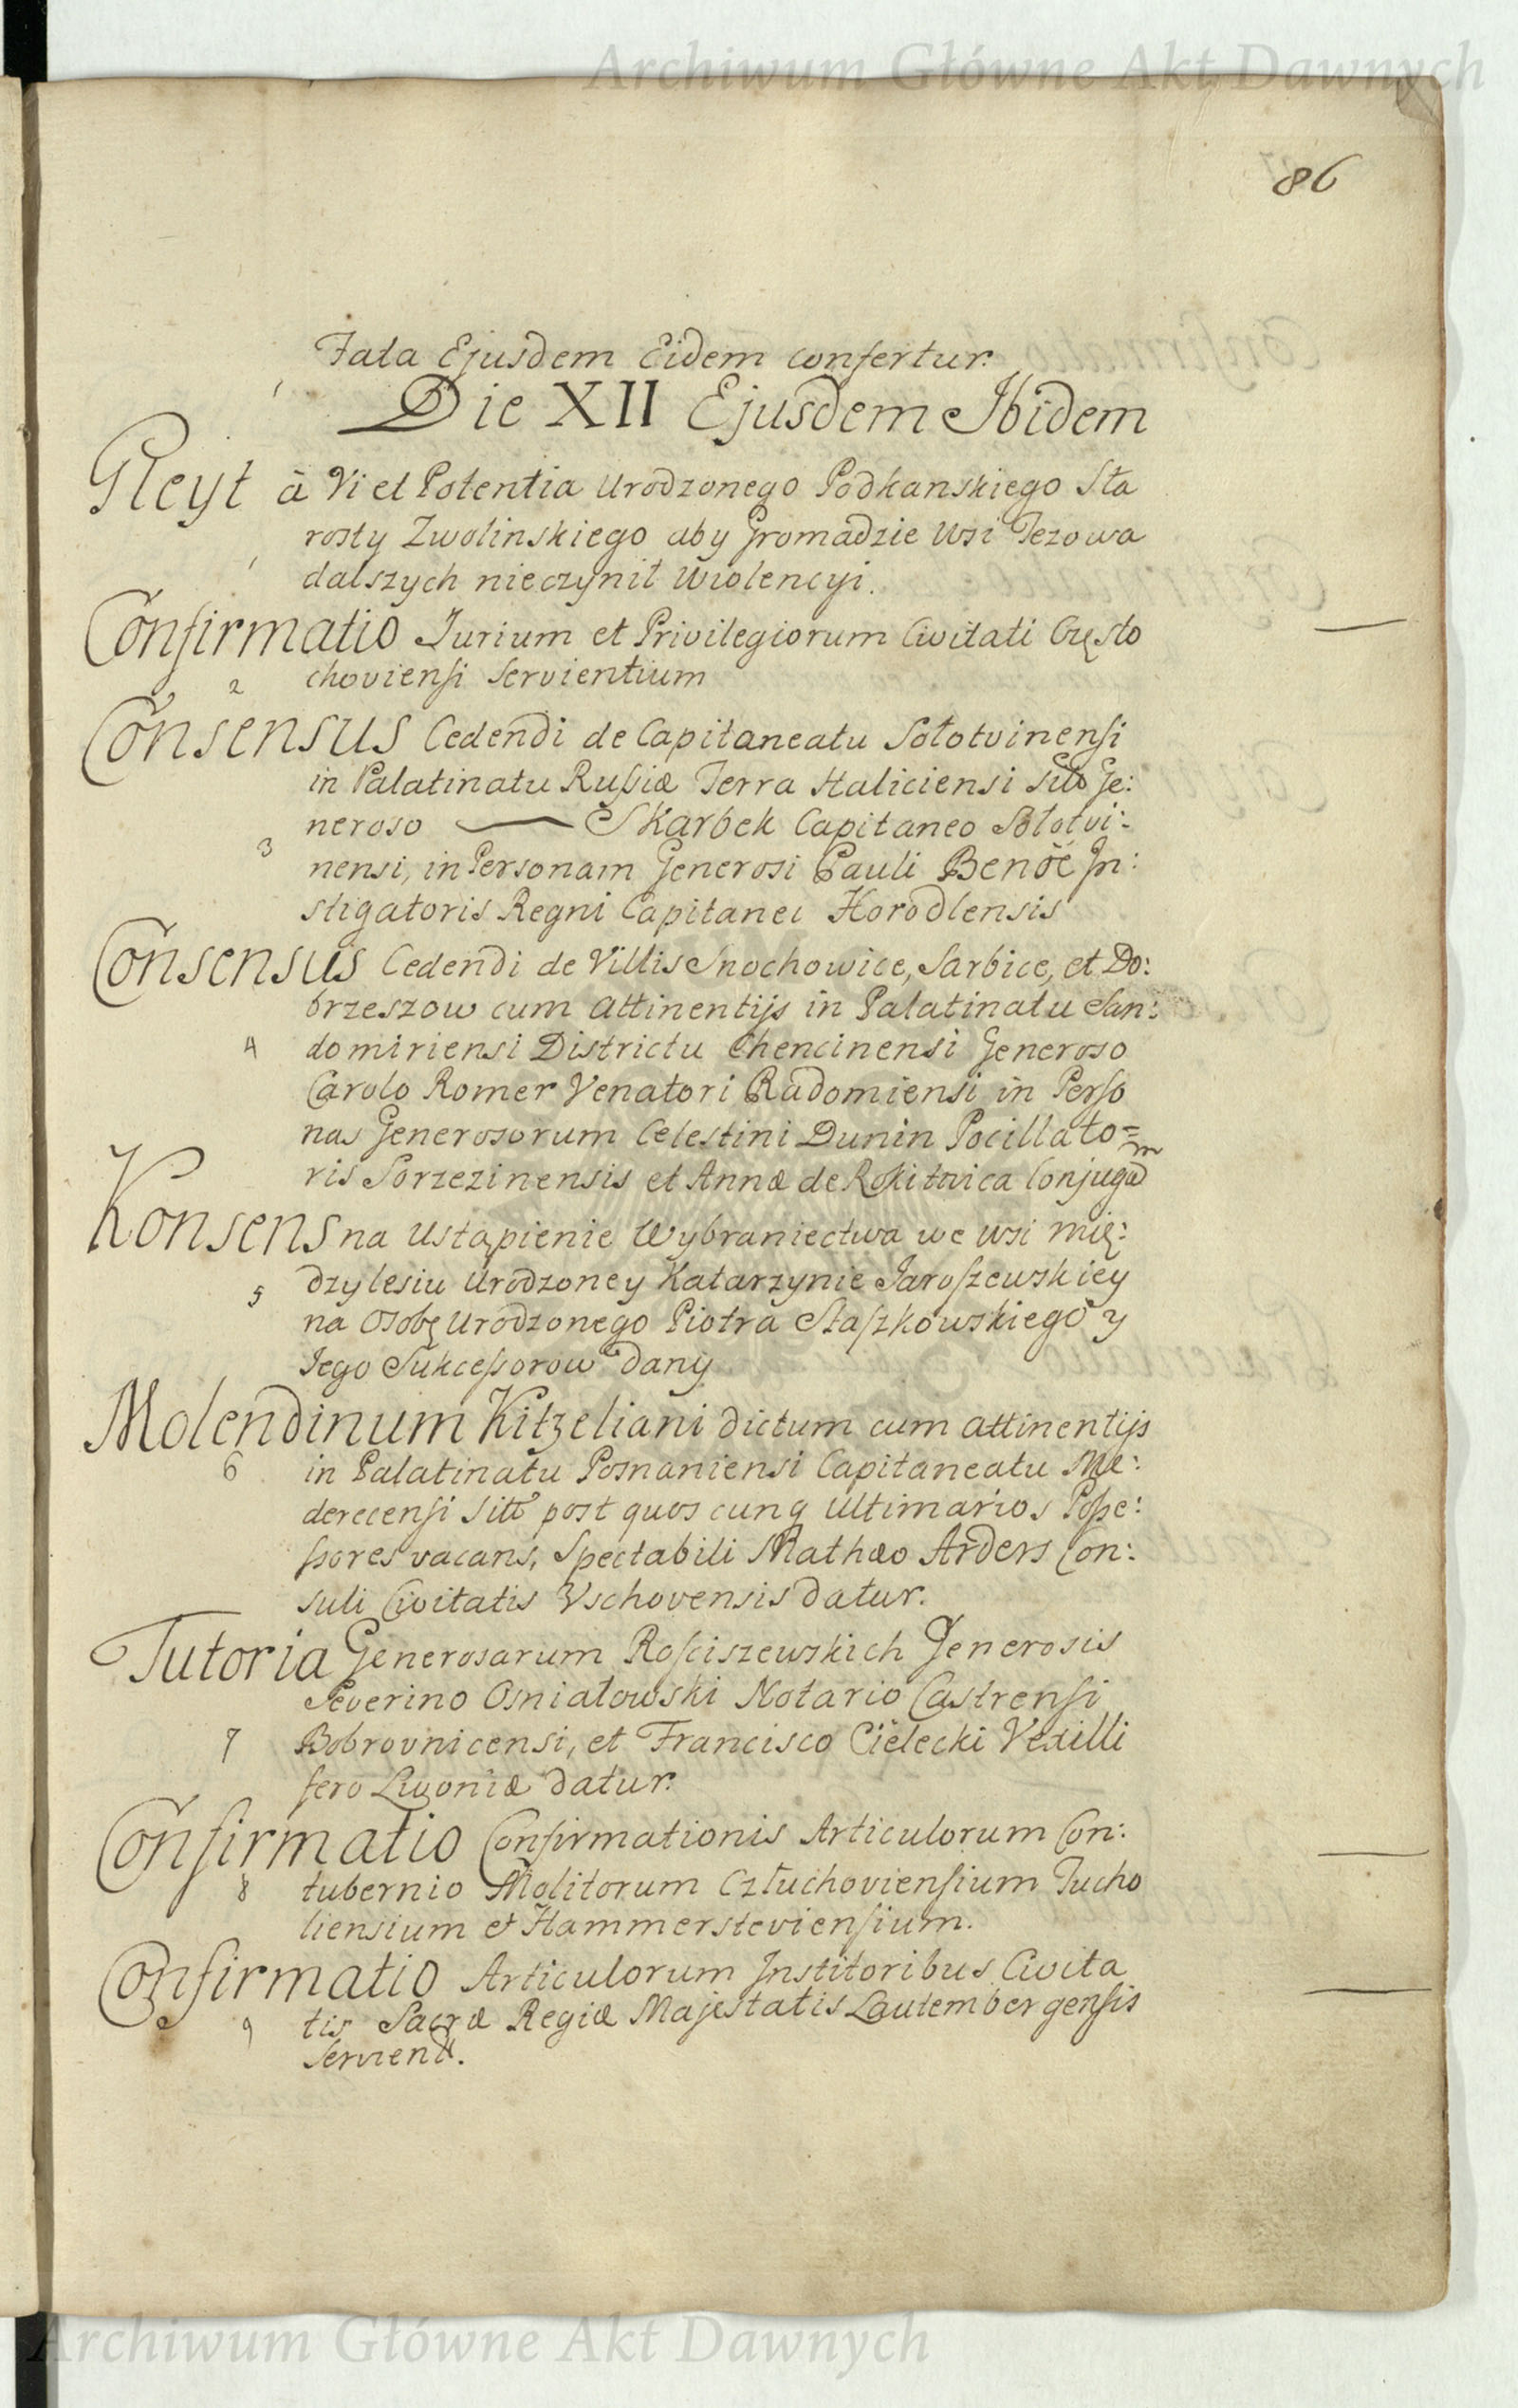 Archiwum Główne Akt Dawnych
86
Fata Ejusdem Eidem confertur.
Die XII Ejusdem Ibidem
Gleyt à Vi et Potentia Urodzonego Podkanskiego Sta
rosty Zwolinskiego aby Gromadzie Wsi Jezowa
1 dalszych nieczynił Wiolencyi.
Confirmatio Jurium et Privilegiorum Civitati Często
2 choviensi Servientium
Consensus Cedendi de Capitaneatu Sołotvinensi
in Palatinatu Russiæ Terra Haliciensi sito Ge:
neroso — Skarbek Capitaneo Słotvi:
3 nensi, in Personam Generosi Pauli Benoé In:
stigatoris Regni Capitanei Horodlensis
Consensus Cedendi de Villis Snochowice, Sarbice, et Do:
brzeszow cum attinentijs in Palatinatu San:
4 domiriensi Districtu Chencinensi Generoso
Carolo Romer Venatori Radomiensi in Perso
nas Generosorum Celestini Dunin Pocillato=
ris Porzezinensis et Annæ de Rokitnica Conjugũm
Konsens na Ustąpienie Wybraniectwa we wsi Mię:
5 dzylesiu Urodzoney Katarzynie Jaroszewskiey
na Osobę Urodzonego Piotra Staszkowskiego y
Jego Sukcessorow dany
Molendinum Kitzeliani dictum cum attinentijs
6 in Palatinatu Posnaniensi Capitaneatu Me:
derecensi sitũ post quos cunq ultimarios Posse:
ssores vacans, Spectabili Mathæo Arders Con:
suli Civitatis Vschovensis datur.
Tutoria Generosarum Rosciszewskich Generosis
Severino Osniałowski Notario Castrensi
7 Bobrovnicensi, et Francisco Cielecki Vexilli
fero Livoniæ datur.
Confirmatio Confirmationis Articulorum Con:
8 tubernio Molitorum Człuchoviensium Tucho
liensium et Hammersteviensium.
Confirmatio Articulorum Institoribus Civita
9 tis Sacræ Regiæ Majestatis Lautembergensis
Serviend.
Archiwum Główne Akt Dawnych